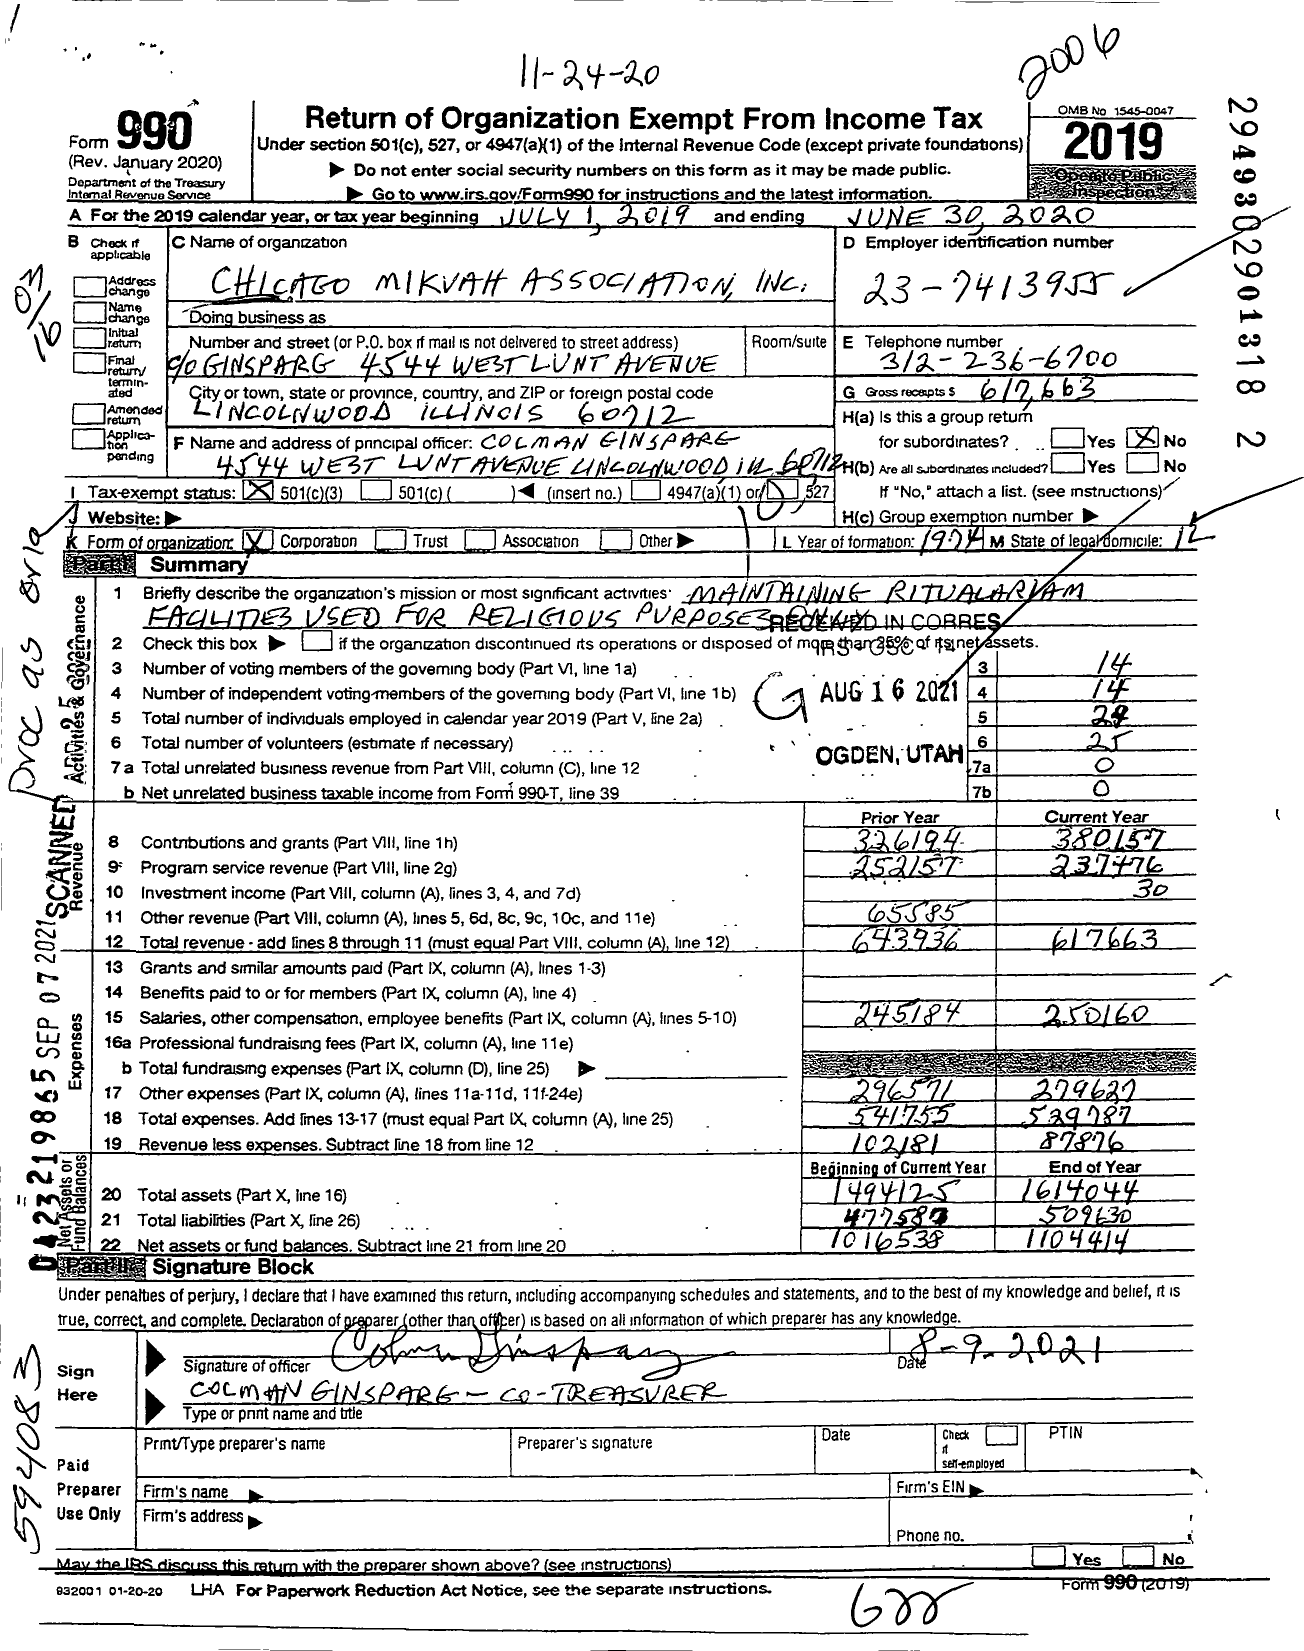 11-24-20
2006
Form 990
(Rev. January 2020)
Department of the Treasury
Internal Revenue Service
Return of Organization Exempt From Income Tax
Under section 501(c), 527, or 4947(a)(1) of the Internal Revenue Code (except private foundations)
▶ Do not enter social security numbers on this form as it may be made public.
▶ Go to www.irs.gov/Form990 for instructions and the latest information.
OMB No 1545-0047
2019
Open to Public
Inspection
29493029013182
A For the 2019 calendar year, or tax year beginning JULY 1, 2019 and ending JUNE 30, 2020
B Check if applicable
Address change
Name change
Initial return
Final return/terminated
Amended return
Application pending
C Name of organization
CHICAGO MIKVAH ASSOCIATION, INC.
Doing business as
Number and street (or P.O. box if mail is not delivered to street address) Room/suite
% GINSPARG 4544 WEST LUNT AVENUE
City or town, state or province, country, and ZIP or foreign postal code
LINCOLNWOOD ILLINOIS 60712
F Name and address of principal officer: COLMAN GINSPARG
4544 WEST LUNT AVENUE LINCOLNWOOD ILL 60712
D Employer identification number
23-7413955
E Telephone number
312-236-6700
G Gross receipts $ 617,663
H(a) Is this a group return
for subordinates? Yes X No
H(b) Are all subordinates included? Yes No
If "No," attach a list. (see instructions)
H(c) Group exemption number ▶
I Tax-exempt status: X 501(c)(3) 501(c) ( ) ◀ (insert no.) 4947(a)(1) or 527
J Website: ▶
K Form of organization: X Corporation Trust Association Other ▶
L Year of formation: 1974 M State of legal domicile: 12
Part I Summary
1 Briefly describe the organization's mission or most significant activities: MAINTAINING RITUALARIAM
FACILITIES USED FOR RELIGIOUS PURPOSES ONLY
RECEIVED IN CORRES
IRS - OSC - 14
AUG 16 2021
OGDEN, UTAH
2 Check this box ▶ if the organization discontinued its operations or disposed of more than 25% of its net assets.
3 Number of voting members of the governing body (Part VI, line 1a) 3 14
4 Number of independent voting members of the governing body (Part VI, line 1b) 4 14
5 Total number of individuals employed in calendar year 2019 (Part V, line 2a) 5 29
6 Total number of volunteers (estimate if necessary) 6 25
7 a Total unrelated business revenue from Part VIII, column (C), line 12 7a 0
b Net unrelated business taxable income from Form 990-T, line 39 7b 0
Activities & Governance
Prior Year Current Year
8 Contributions and grants (Part VIII, line 1h) 326194 380157
9 Program service revenue (Part VIII, line 2g) 252157 237476
10 Investment income (Part VIII, column (A), lines 3, 4, and 7d) 30
11 Other revenue (Part VIII, column (A), lines 5, 6d, 8c, 9c, 10c, and 11e) 65585
12 Total revenue - add lines 8 through 11 (must equal Part VIII, column (A), line 12) 643936 617663
Revenue
13 Grants and similar amounts paid (Part IX, column (A), lines 1-3)
14 Benefits paid to or for members (Part IX, column (A), line 4)
15 Salaries, other compensation, employee benefits (Part IX, column (A), lines 5-10) 245184 250160
16a Professional fundraising fees (Part IX, column (A), line 11e)
b Total fundraising expenses (Part IX, column (D), line 25) ▶
17 Other expenses (Part IX, column (A), lines 11a-11d, 11f-24e) 296571 279627
18 Total expenses. Add lines 13-17 (must equal Part IX, column (A), line 25) 541755 529787
19 Revenue less expenses. Subtract line 18 from line 12 102181 87876
Expenses
Beginning of Current Year End of Year
20 Total assets (Part X, line 16) 1494125 1614044
21 Total liabilities (Part X, line 26) 477587 509630
22 Net assets or fund balances. Subtract line 21 from line 20 1016538 1104414
Net Assets or Fund Balances
SCANNED
04232219865 SEP 07 2021
Part II Signature Block
Under penalties of perjury, I declare that I have examined this return, including accompanying schedules and statements, and to the best of my knowledge and belief, it is
true, correct, and complete. Declaration of preparer (other than officer) is based on all information of which preparer has any knowledge.
Sign Here
Colman Ginsparg 8-9-2021
Signature of officer Date
COLMAN GINSPARG - CO-TREASURER
Type or print name and title
Paid Preparer Use Only
Print/Type preparer's name Preparer's signature Date Check if self-employed PTIN
Firm's name ▶ Firm's EIN ▶
Firm's address ▶
Phone no.
May the IRS discuss this return with the preparer shown above? (see instructions) Yes No
932001 01-20-20 LHA For Paperwork Reduction Act Notice, see the separate instructions. Form 990 (2019)
594083
622